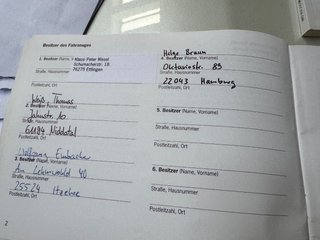 Besitzer des Fahrzeuges
1. Besitzer (Name, Vorname)
Klaus-Peter Wiesel
Schumacherstr. 18
76275 Ettlingen
Straße, Hausnummer
Postleitzahl, Ort
Weiß, Thomas
2. Besitzer (Name, Vorname)
Jahnstr. 10
Straße, Hausnummer
61184 Niddatal
Postleitzahl, Ort
Wolfgang
3. Besitzer (Name, Vorname)
Am 40
Straße, Hausnummer
25524 Itzehoe
Postleitzahl, Ort
2
Helge Braun
4. Besitzer (Name, Vorname)
Oktaviostr. 89
Straße, Hausnummer
22043 Hamburg
Postleitzahl, Ort
5. Besitzer (Name, Vorname)
Straße, Hausnummer
Postleitzahl, Ort
6. Besitzer (Name, Vorname)
Straße, Hausnummer
Postleitzahl, Ort